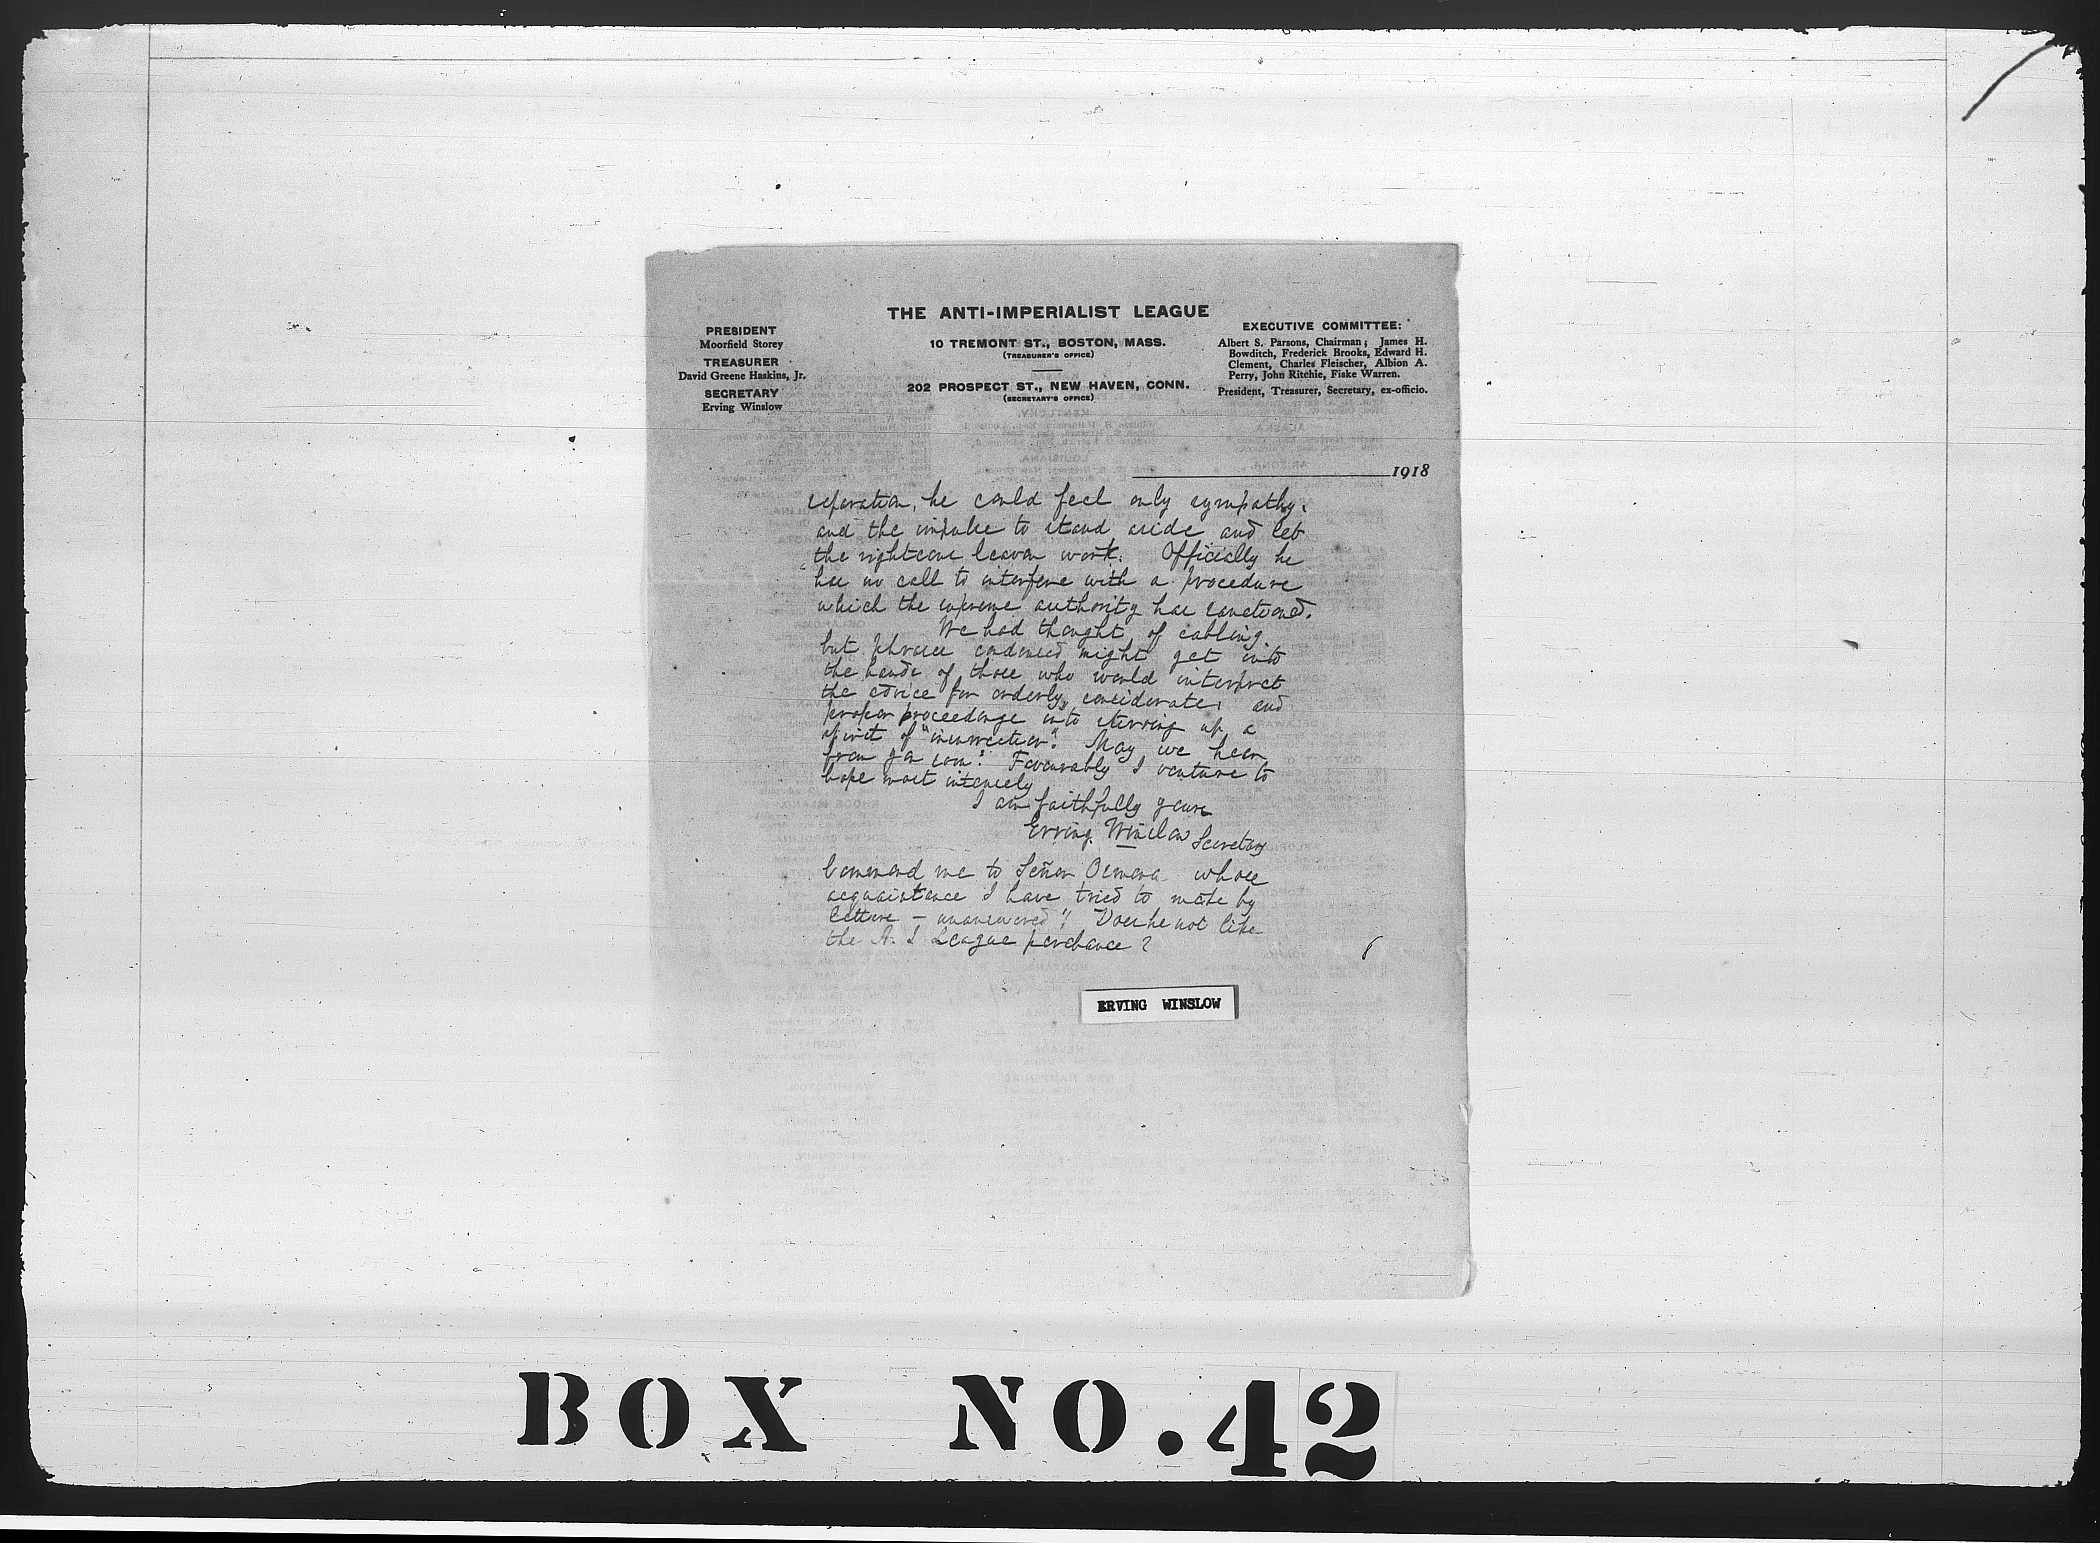 THE ANTI-IMPERIALIST LEAGUE
10 TREMONT ST., BOSTON, MASS.
(TREASURER'S OFFICE)
202 PROSPECT ST., NEW HAVEN, CONN.
(SECRETARY'S OFFICE)
PRESIDENT
Moorfield Storey
TREASURER
David Greene Haskins, Jr.
SECRETARY
Erving Winslow
EXECUTIVE COMMITTEE:
Albert S. Parsons, Chairman; James H.
Bowditch, Frederick Brooks, Edward H.
Clement, Charles Fleischer, Albion A.
Perry, John Ritchie, Fiske Warren.
President, Treasurer, Secretary, ex-officio.
1918
separation, he could feel only sympathy,
and the impulse to stand aside and let
the righteous leaven work. Officially he
has no call to interfere with a procedure
which the supreme authority has sanctioned.
We had thought of cabling
but phrases condensed might get into
the hands of those who would interpret
the advice for orderly, considerate, and
proper proceedings into stirring up a
spirit of "insurrection". May we hear
from you soon? Favourably I venture to
hope most intensely
I am faithfully yours
Erving Winslow Secretary
Commend me to Señor Osmena whose
acquaintance I have tried to make by
letters — unanswered! Does he not like
the A. I League perchance?
ERVING WINSLOW
BOX NO. 42